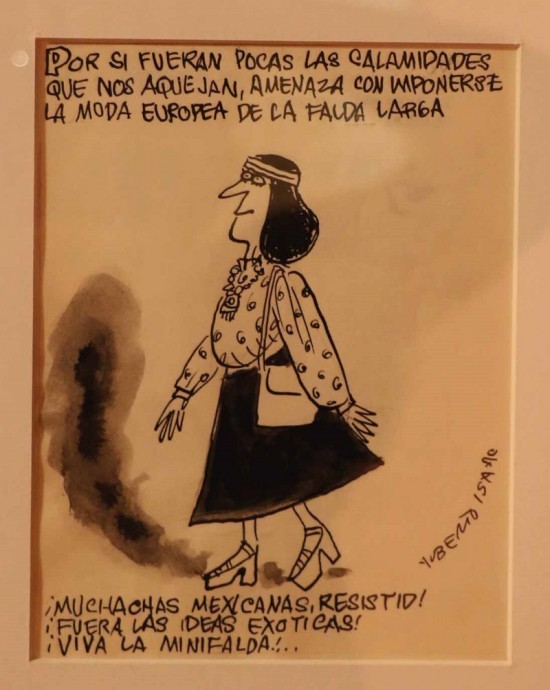 POR SI FUERAN POCAS LAS CALAMIDADES
QUE NOS AQUEJAN, AMENAZA CON IMPONERSE
LA MODA EUROPEA DE LA FALDA LARGA
YBERTO ISAAC
¡MUCHACHAS MEXICANAS, RESISTID!
¡FUERA LAS IDEAS EXOTICAS!
¡VIVA LA MINIFALDA!..